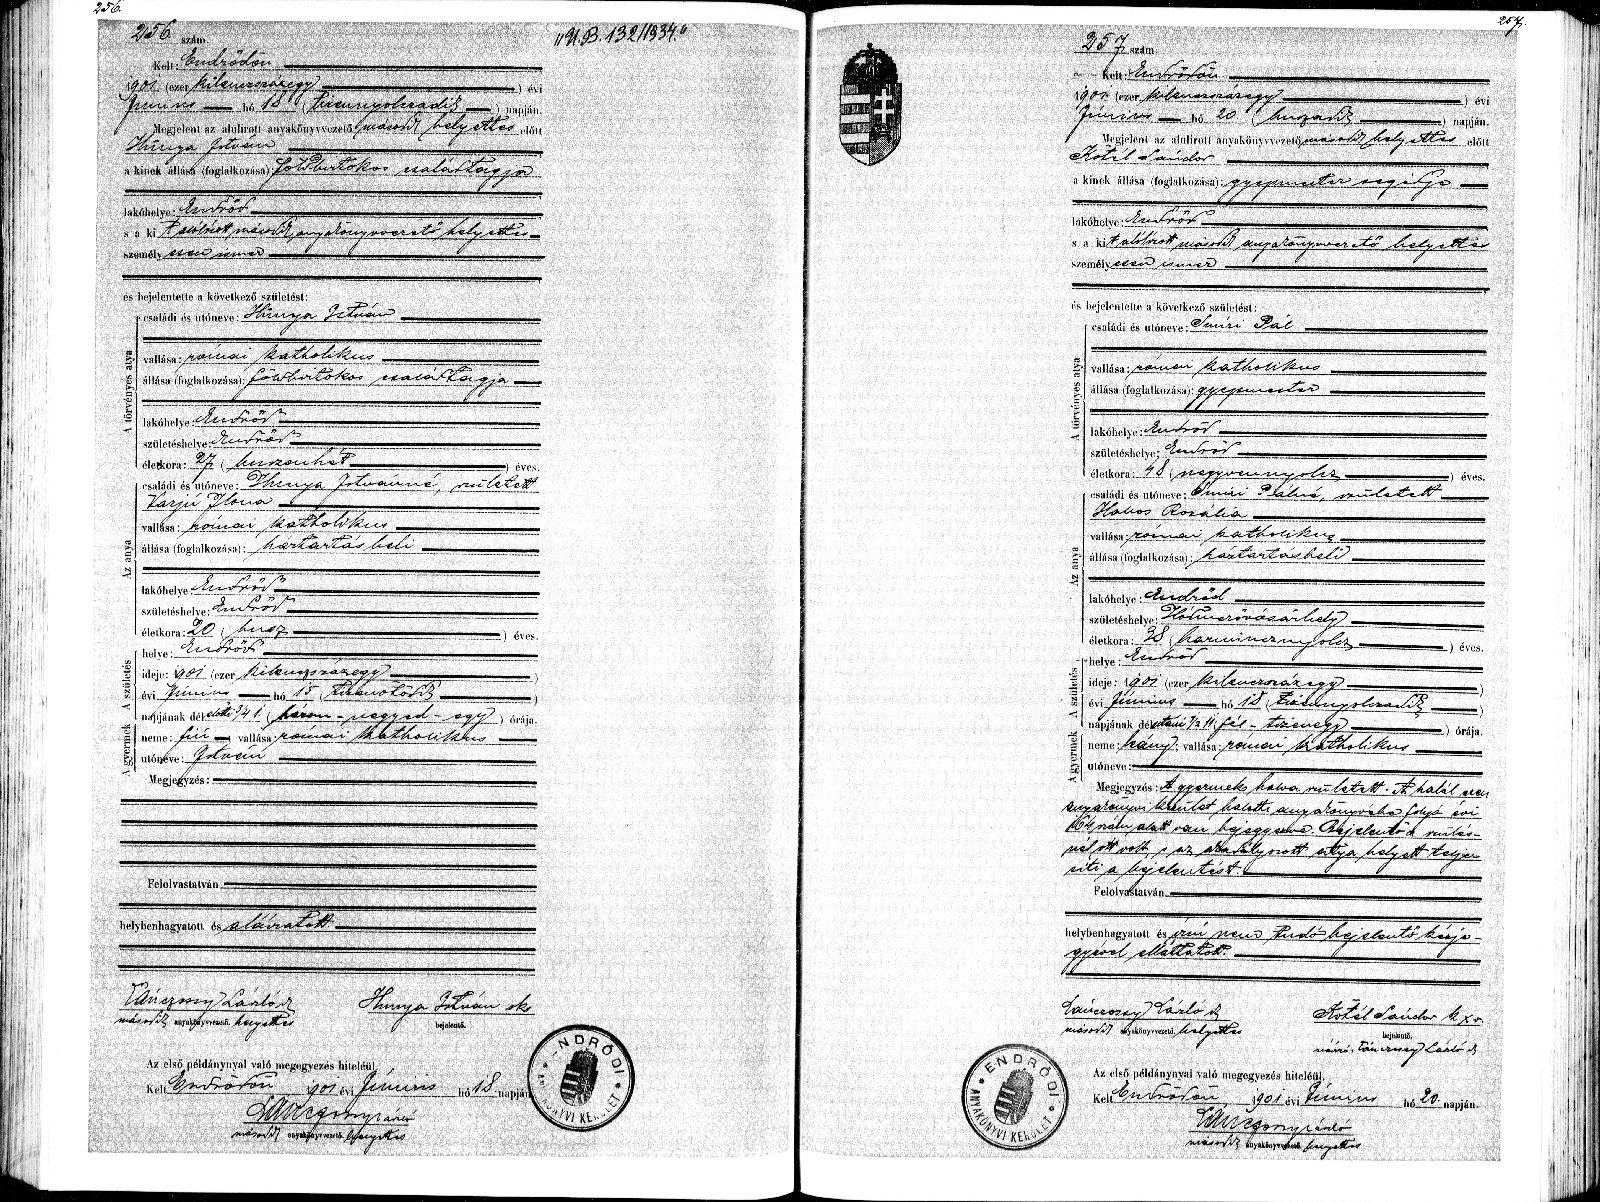 256.
256 szám.
"U.B. 132/1934."
Kelt: Endrődön
1901 (ezer kilenczszázegy) évi
Június hó 18 (tizennyolczadik) napján.
Megjelent az alulirott anyakönyvvezető második helyettes előtt
Hunya István
a kinek állása (foglalkozása) földbirtokos családtagja
lakóhelye: Endrőd
s a kit alólirott, második anyakönyvvezető helyettes
személyesen ismer
és bejelentette a következő születést:
A törvényes atya
családi és utóneve: Hunya István
vallása: római katholikus
állása (foglalkozása): földbirtokos családtagja
lakóhelye: Endrőd
születéshelye: Endrőd
életkora: 27 (huszonhét) éves.
Az anya
családi és utóneve: Hunya Istvánné, született
Varjú Ilona
vallása: római katholikus
állása (foglalkozása): háztartásbeli
lakóhelye Endrőd
születéshelye: Endrőd
életkora: 20 (husz) éves.
A születés
helye: Endrőd
ideje: 1901 (ezer kilenczszázegy)
évi Június hó 15 (tizenötödik)
napjának délelőtti 3/4 1 (három-negyed-egy) órája.
A gyermek
neme: fiú vallása: római katholikus
utóneve: István
Megjegyzés:
Felolvastatván
helybenhagyatott és aláiratott.
Lánczossy László
második anyakönyvvezető helyettes
Hunya István sk
bejelentő.
Az első példánynyal való megegyezés hiteléül
Kelt Endrődön 1901 évi Június hó 18 napján
Lánczossy László
második anyakönyvvezető helyettes
ENDRŐDI ANYAKÖNYVI KERÜLET
257.
257 szám.
Kelt: Endrődön
1901 (ezer kilenczszázegy) évi
Június hó 20 (huszadik) napján.
Megjelent az alulirott anyakönyvvezető második helyettes előtt
Kótél Sándor
a kinek állása (foglalkozása): gyepmester segédje
lakóhelye: Endrőd
s a kit alólirott második anyakönyvvezető helyettes
személyesen ismer
és bejelentette a következő születést:
A törvényes atya
családi és utóneve: Imri Pál
vallása: római katholikus
állása (foglalkozása): gyepmester
lakóhelye: Endrőd
születéshelye: Endrőd
életkora: 48 (negyvennyolcz) éves.
Az anya
családi és utóneve: Imri Pálné, született
Habos Rozália
vallása: római katholikus
állása (foglalkozása): háztartásbeli
lakóhelye: Endrőd
születéshelye: Hódmezővásárhely
életkora: 38 (harmincznyolcz) éves.
A születés
helye: Endrőd
ideje: 1901 (ezer kilenczszázegy)
évi Június hó 18 (tizennyolczadik)
napjának délutáni 1/2 11 (fél-tizenegy) órája.
A gyermek
neme: leány; vallása: római katholikus
utóneve:
Megjegyzés: A gyermek halva született. A halál ezen
anyakönyvi kerület halotti anyakönyvébe folyó évi
164 szám alatt van bejegyezve. Bejelentő a szülés-
nél ott volt, s az akadályozott atya helyett teljesí-
siti a bejelentést.
Felolvastatván.
helybenhagyatott és írni nem tudó bejelentő kézje-
gyével elláttatott.
Lánczossy László
második anyakönyvvezető helyettes
Kótél Sándor k x v
bejelentő.
névíró Lánczossy László
Az első példánynyal való megegyezés hiteléül,
Kelt Endrődön, 1901 évi Június hó 20 napján.
Lánczossy László
második anyakönyvvezető helyettes
ENDRŐDI ANYAKÖNYVI KERÜLET